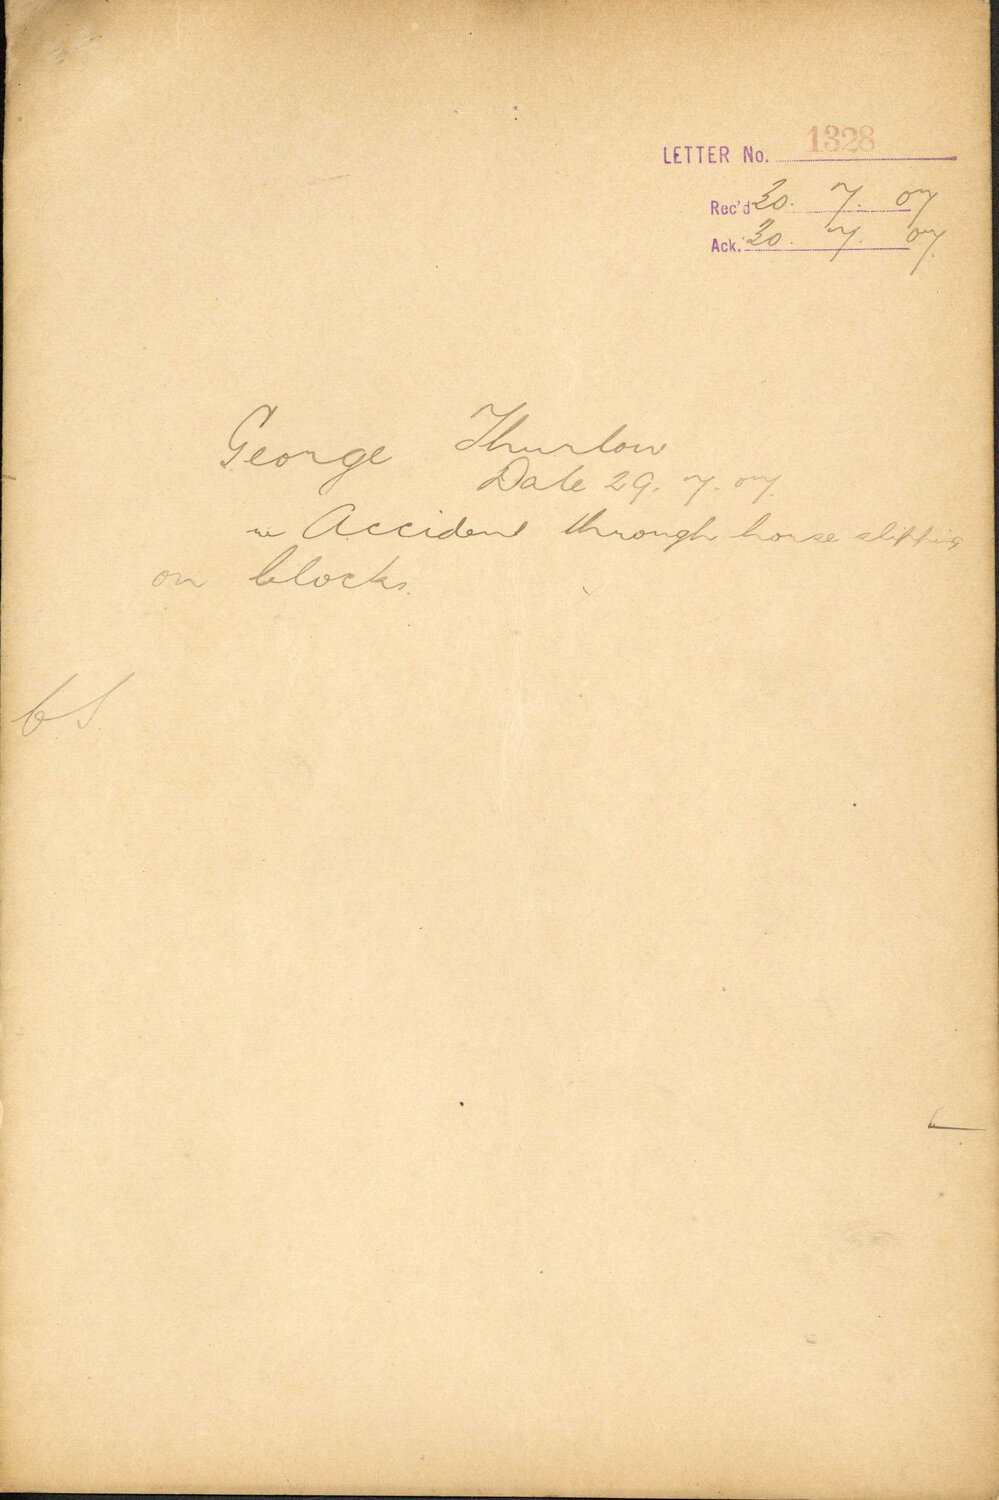 LETTER No. 1328
Rec'd 30. 7. 07
Ack. 30. 7. 07.
George Thurlow
Date 29. 7. 07.
re Accident through horse slipping
on blocks.